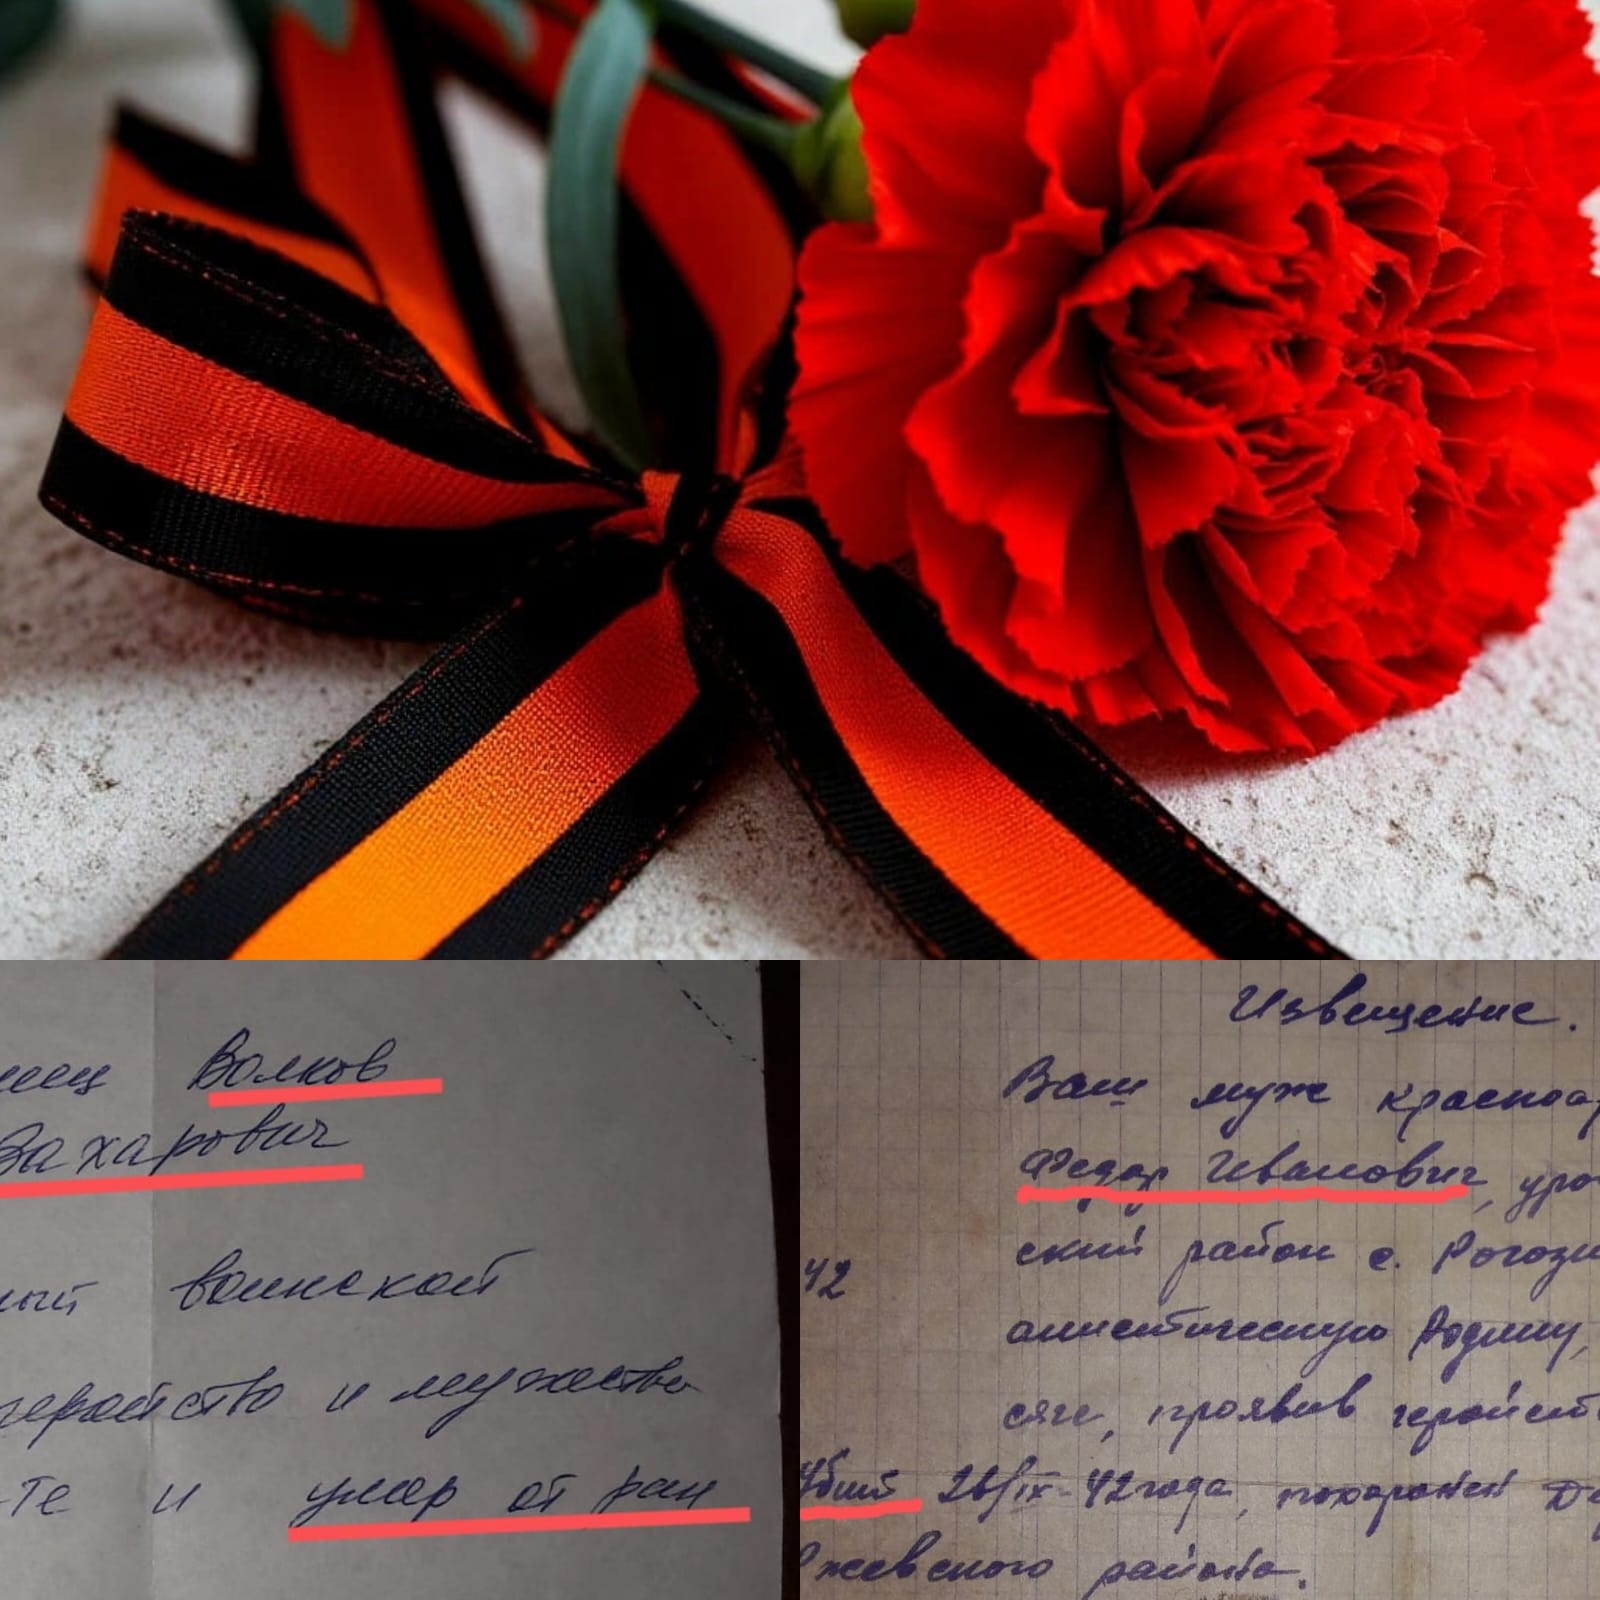 Волков
Захарович
воинской
геройство и мужество
-те и умер от ран
Извещение.
Ваш муж красноар
Федор Иванович, уро
ский район с. Рогози
42
алистическую Родину,
сяге, проявив геройст
Убит 26/IX-42 года, похоронен Де
Ржевского района.